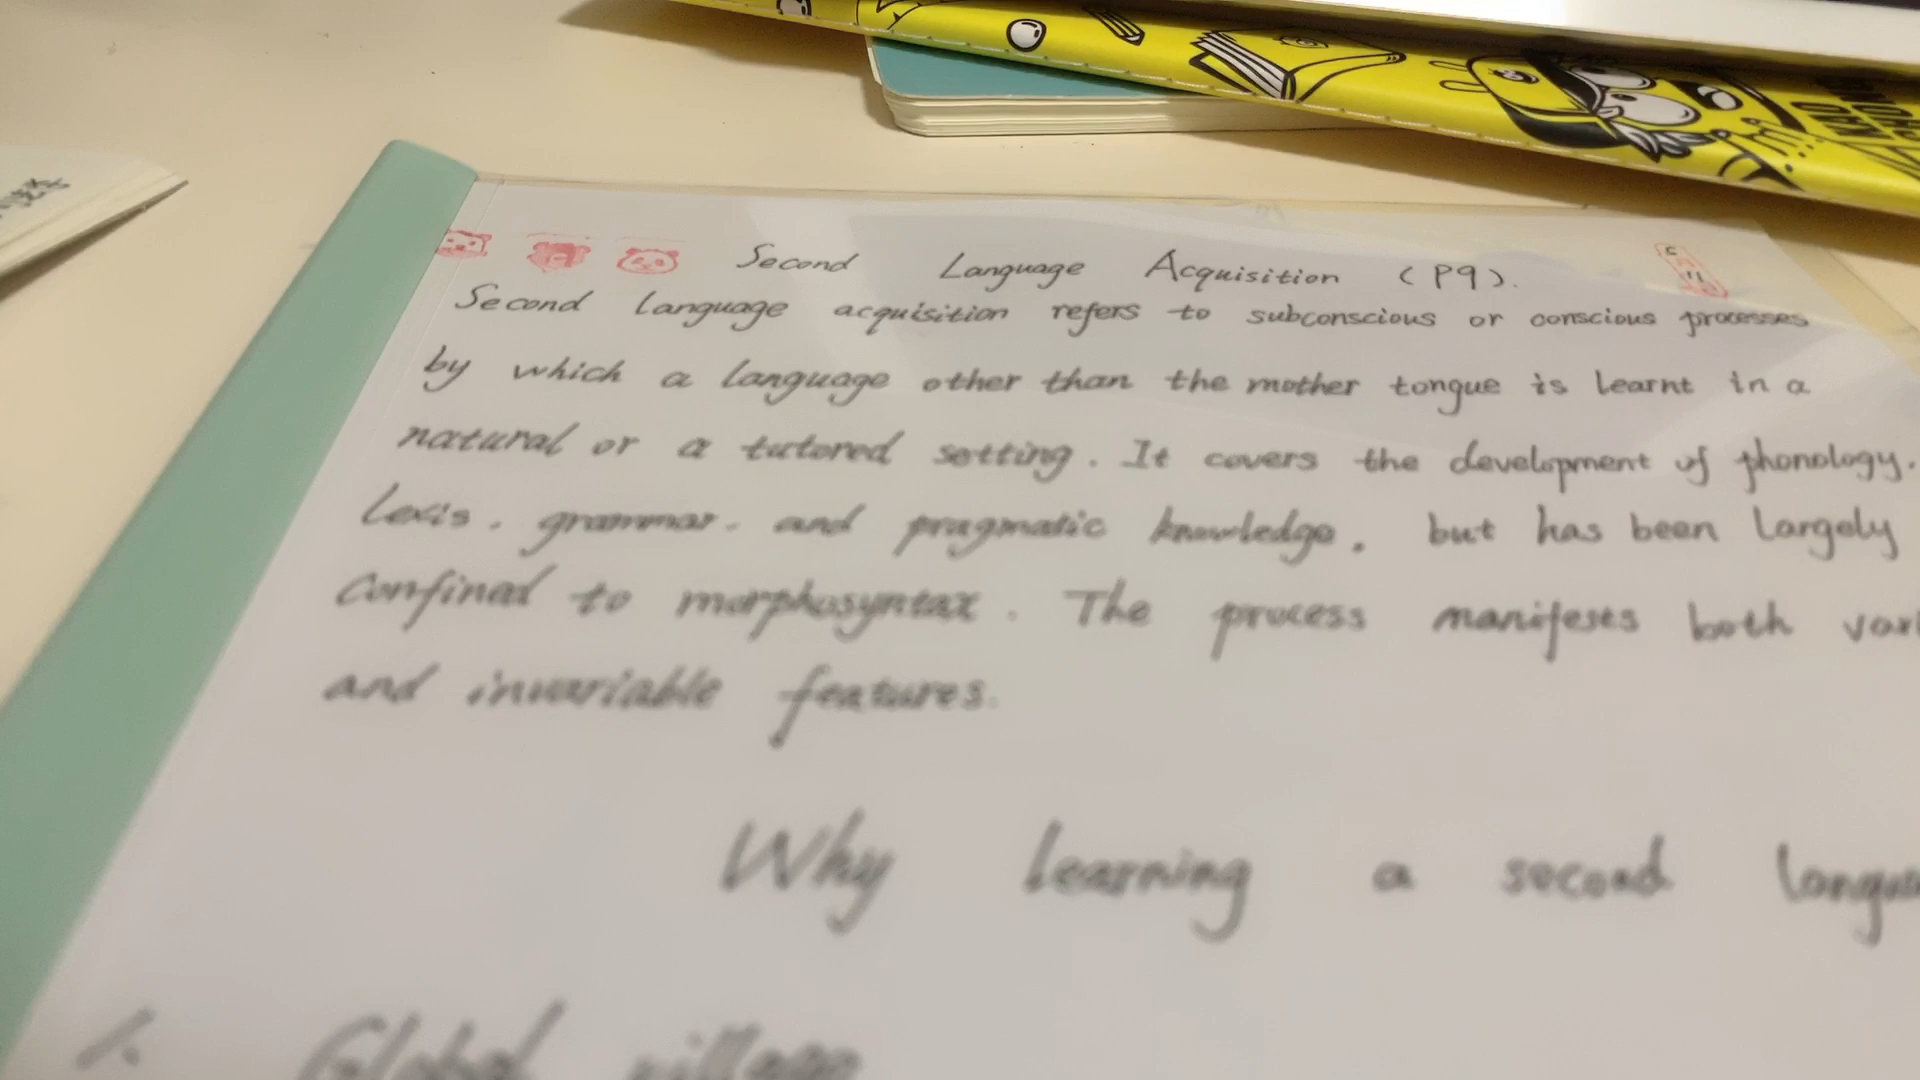 Second Language Acquisition (P9).
Second language acquisition refers to subconscious or conscious processes
by which a language other than the mother tongue is learnt in a
natural or a tutored setting. It covers the development of phonology.
Lexis. grammar. and pragmatic knowledge. but has been largely
confined to morphosyntax. The process manifests both
and invariable features.
Why learning a second
1. Global village